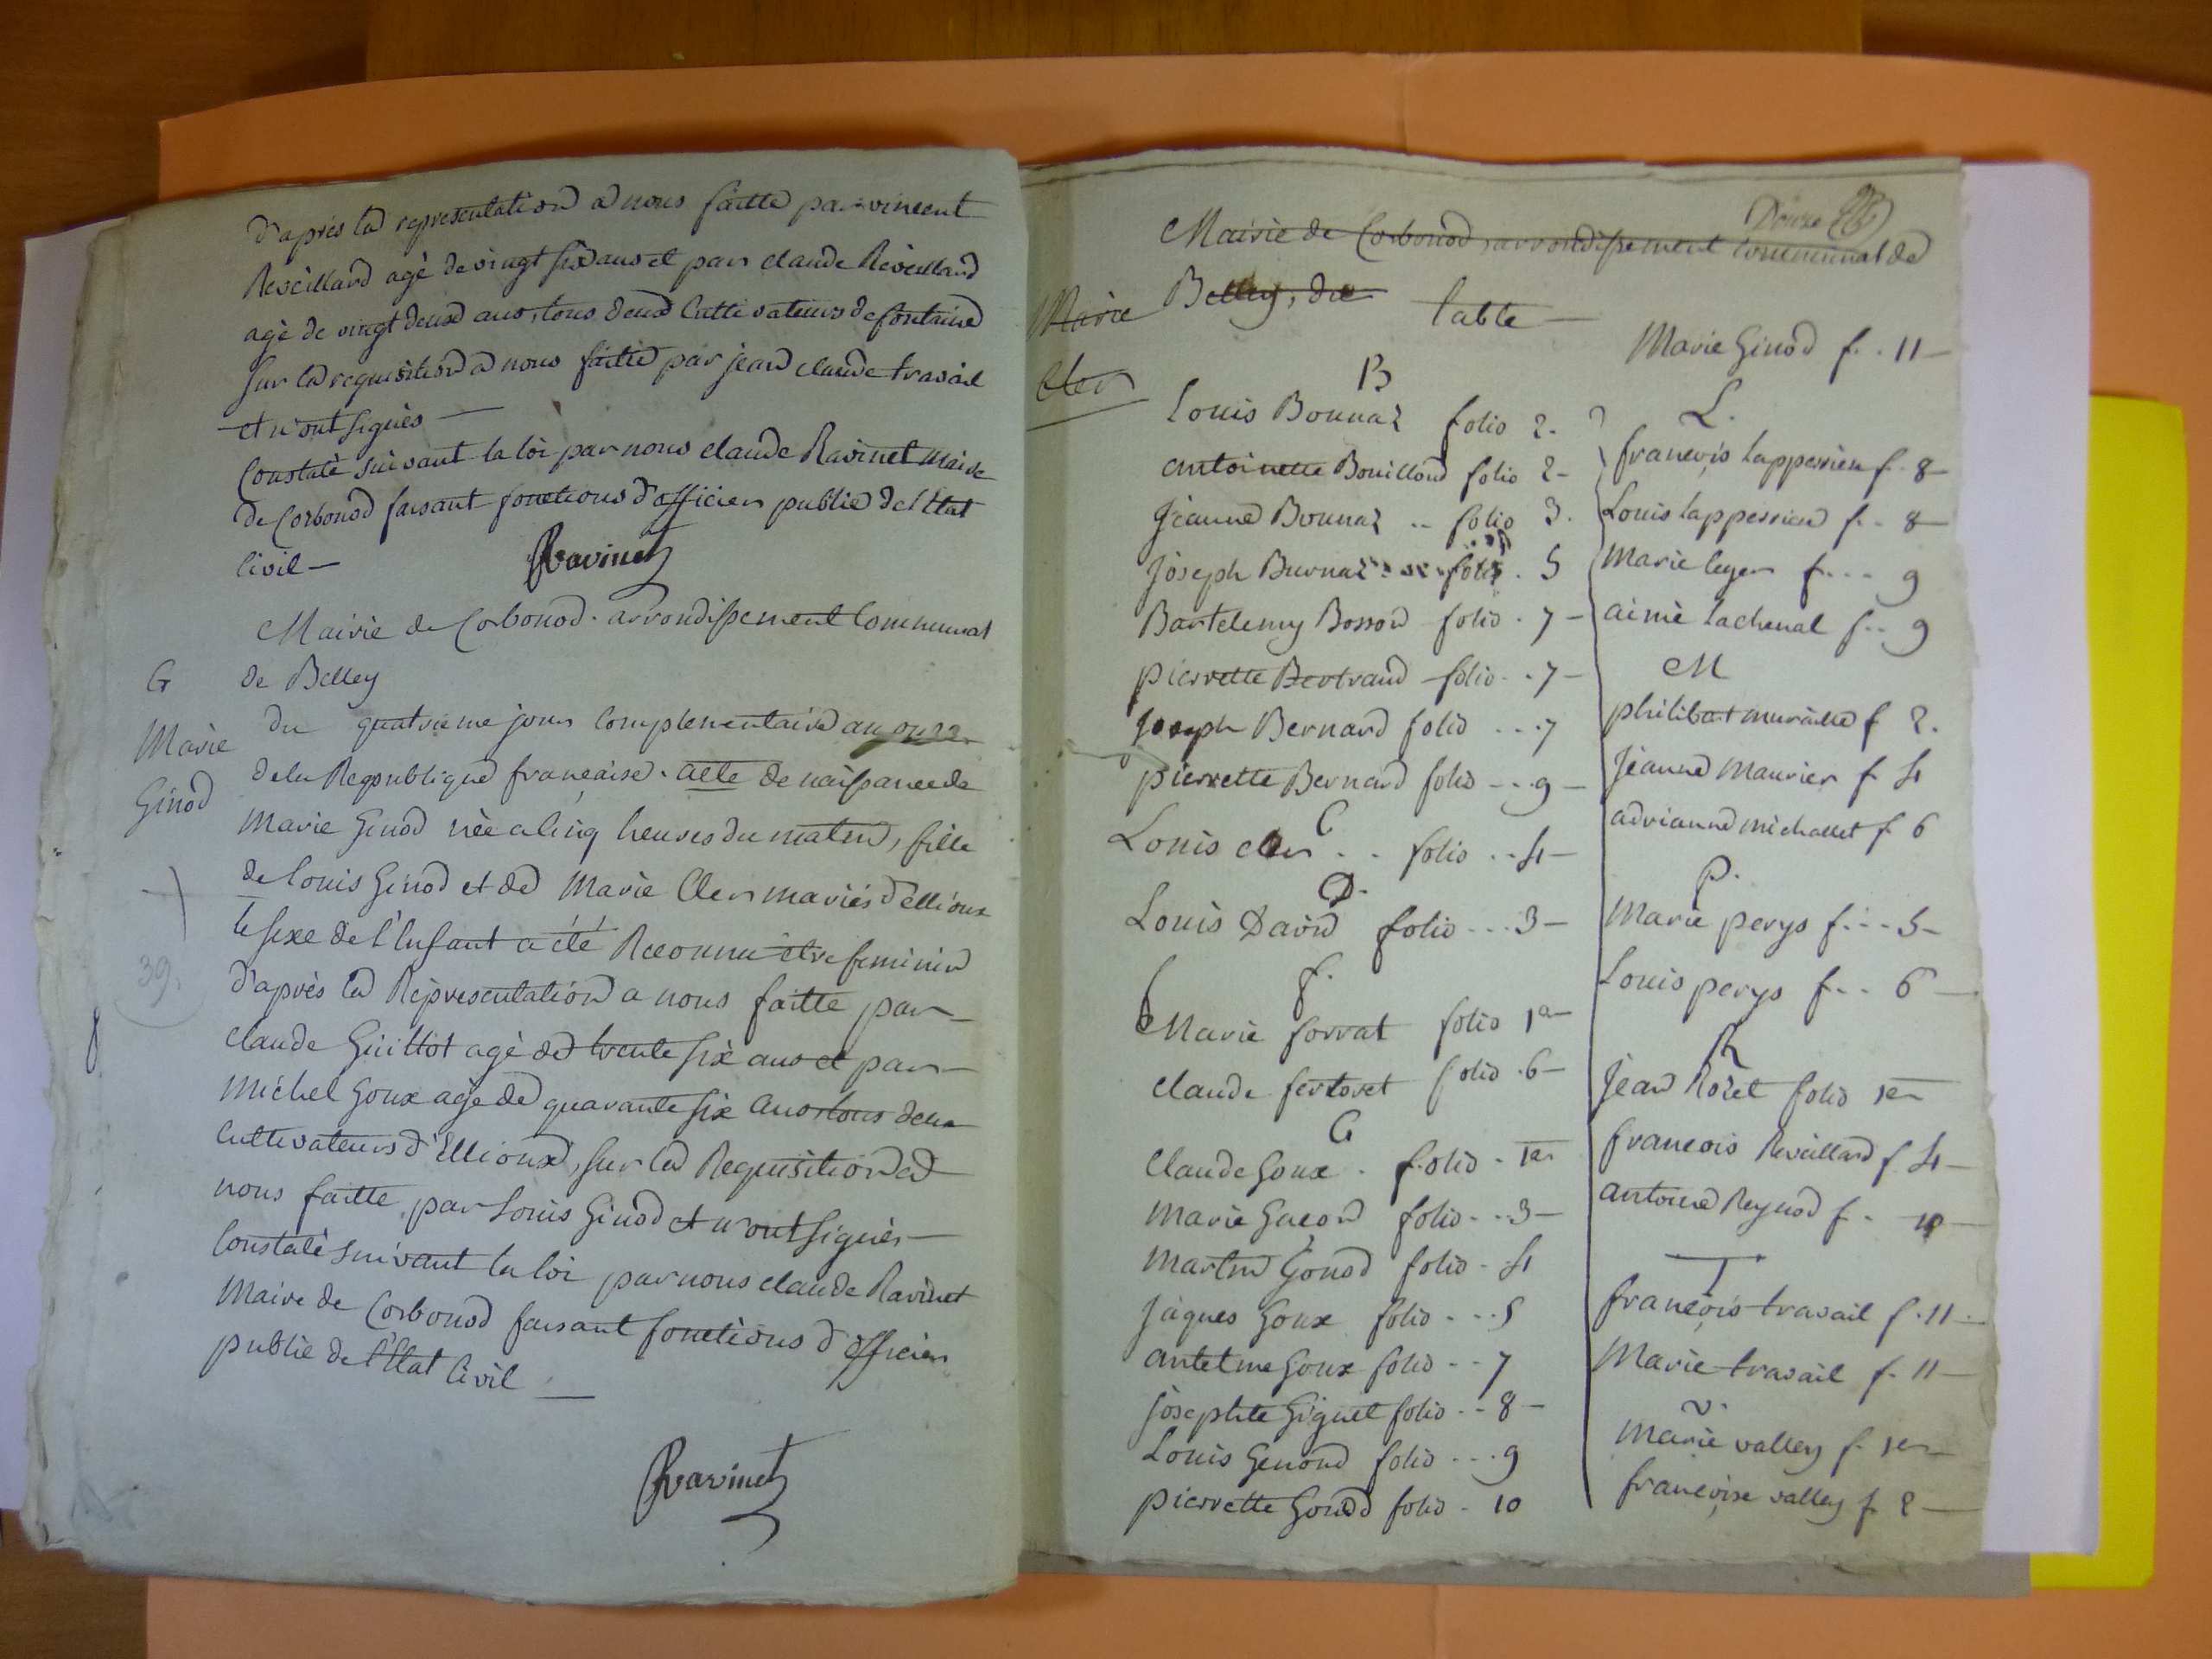 d'après la representation a nous faitte par vincent
Reveillard agé de vingt six ans et par claude Reveillard
agé de vingt deux ans, tous deux Cultivateurs de fontaine
Sur la requisition a nous faitte par jean claude travail
et n'ont signés —
Constaté suivant la loi par nous claude Ravinet Maire
de Corbonod faisant fonctions d'officier public de l'Etat
Civil —
Ravinet
Mairie de Corbonod. arrondissement Communal
de Belley
G
Marie
Ginod
39.
du quatrieme jour Complementaire an onze
de la Republique française. acte de naissance de
Marie Ginod née a Cinq heures du matin, fille
de Louis Ginod et de Marie Cler mariés d'Ellioux
le sexe de l'Enfant a été Reconnu etre feminin
d'après la Représentation a nous faitte par
Claude Guillot agé de trente six ans et par
Michel Goux agé de quarante six ans tous deux
Cultivateurs d'Ellioux, sur la Requisition a
nous faitte par Louis Ginod et n'ont signés —
Constaté suivant la loi par nous claude Ravinet
Maire de Corbonod faisant fonctions d'officier
public de l'Etat Civil —
Ravinet
Douze
Mairie de Corbonod, arrondissement Communal de
Belley, du
Marie
Cler
table —
B
Louis Bonnaz folio 2.
antoinette Bouillond folio 2 -
Jeanne Bonnaz .. folio 3.
Joseph Burnaz folio . 5
Bartelemy Bosson folio . 7 -
pierrette Bertrand folio . . 7 -
Joseph Bernard folio . . . 7
pierrette Bernard folio - . . 9 -
C
Louis Cler . . folio . . 4 -
D.
Louis David folio . . . 3 -
f.
Marie forrat folio 1er
claude fertoret folio . 6 -
G
Claude Goux . folio . 1er
Marie Gacon folio . . 3 -
Martin Gonod folio . 4
Jaques Goux folio . . . 5
antelme Goux folio . . 7
josephte Giguet folio . . 8 -
Louis Genond folio . . . 9
pierrette Gonod folio . 10
Marie Ginod f. . 11 -
L.
françois lapperrier f. 8 -
Louis lapperrier f. . 8 -
Marie leger f. . . . 9
aimé lachenal f. . 9
M
philibert muraille f 2.
Jeanne Maurier f 4
adrianne michallet f 6
p.
Marie perys f. . . . 5 -
Louis perys f. . . 6 -
R
Jean Rozet folio 1er
francois Reveillard f 4 -
antoine Reynod f. . 10 -
T
françois travail f. 11 -
Marie travail f. 11 -
v.
Marie valley f. 1er
françoise valley f 2 -